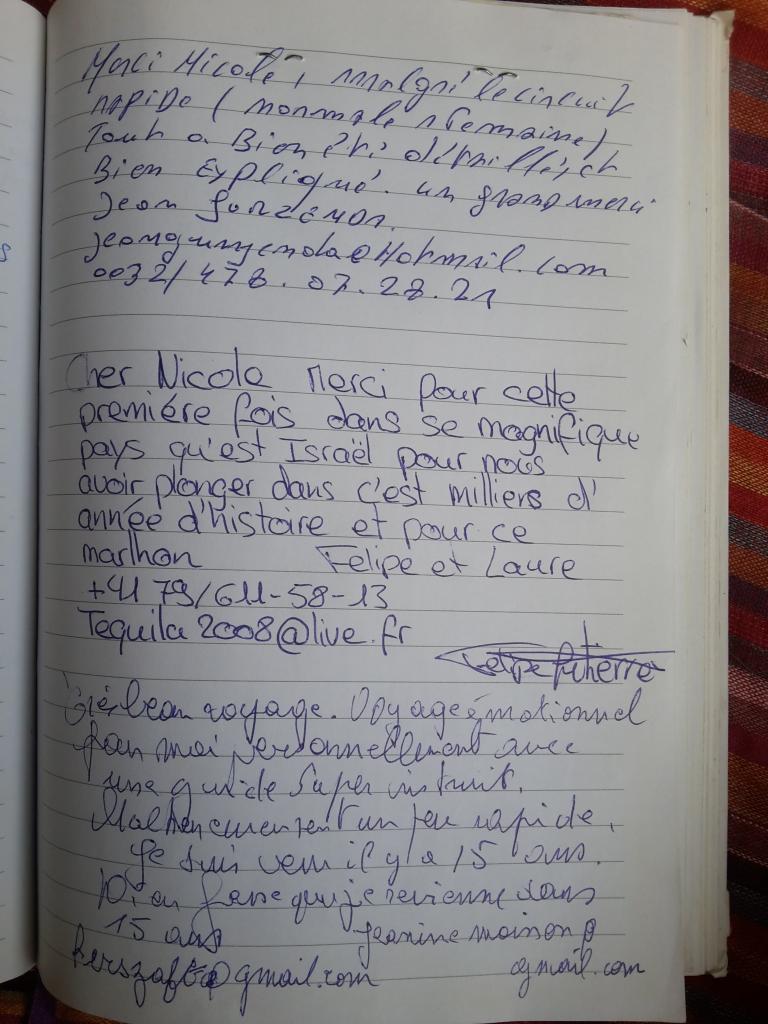 Merci Nicole, malgré le circuit
rapide (normale 1 Semaine)
Tout a Bien été détaillés, et
Bien Expliqué. un grand merci
Jean
@Hotmail.com
0032/478.07.28.21
Cher Nicole Merci pour cette
premiére fois dans se magnifique
pays qu'est Israël pour nous
avoir plonger dans c'est milliers d'
année d'histoire et pour ce
marthon Felipe et Laure
+41 79/611-58-13
Tequila2008@live.fr
Felipe
Très beau voyage. Voyage émotionnel
pour moi personnellement avec
une guide Super instruit.
Malheureusement un peu rapide.
Je suis venu il y a 15 ans.
fasse que je revienne dans
15 ans jeanine moison @
@gmail.com gmail.com